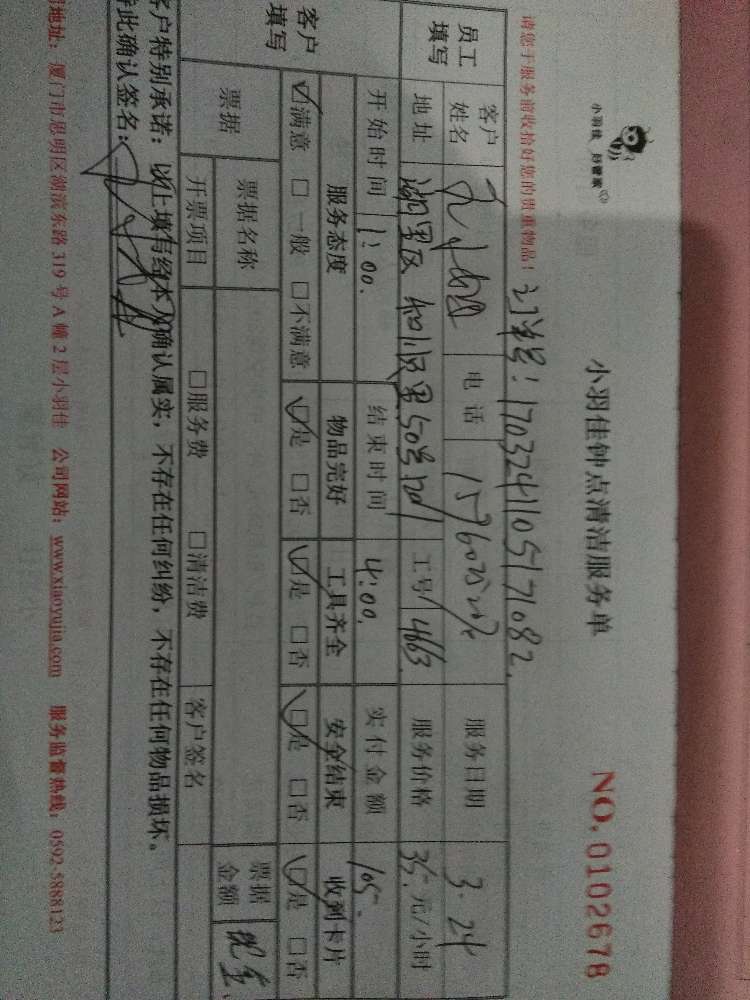 小羽佳 好管家
小羽佳钟点清洁服务单
NO.0102678
请您于服务前收拾好您的贵重物品！
订单号：170324110517082.
员工填写 客户姓名 电话 服务日期 3.24
地址 湖里区 和顺里50号 工号 14663. 服务价格 35. 元/小时
开始时间 1:00. 结束时间 4:00. 实付金额 105.
客户填写 服务态度 物品完好 工具齐全 安全结束 收到卡片
☑满意 □一般 □不满意 ☑是 □否 ☑是 □否 ☑是 □否 ☑是 □否
票据 票据名称 票据金额 现金
开票项目 □服务费 □清洁费 客户签名
客户特别承诺：以上填写经本人确认属实，不存在任何纠纷，不存在任何物品损坏。
特此确认签名：
司地址：厦门市思明区湖滨东路319号A幢2层小羽佳 公司网站：www.xiaoyujia.com 服务监督热线：0592.5888123